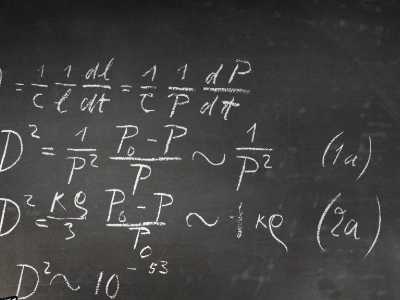 = 1/c 1/l dl/dt = 1/c 1/P dP/dt
D² = 1/P² (P₀-P)/P ~ 1/P² (1a)
D² = κρ/3 (P₀-P)/P₀ ~ κρ (2a)
D² ~ 10⁻⁵³